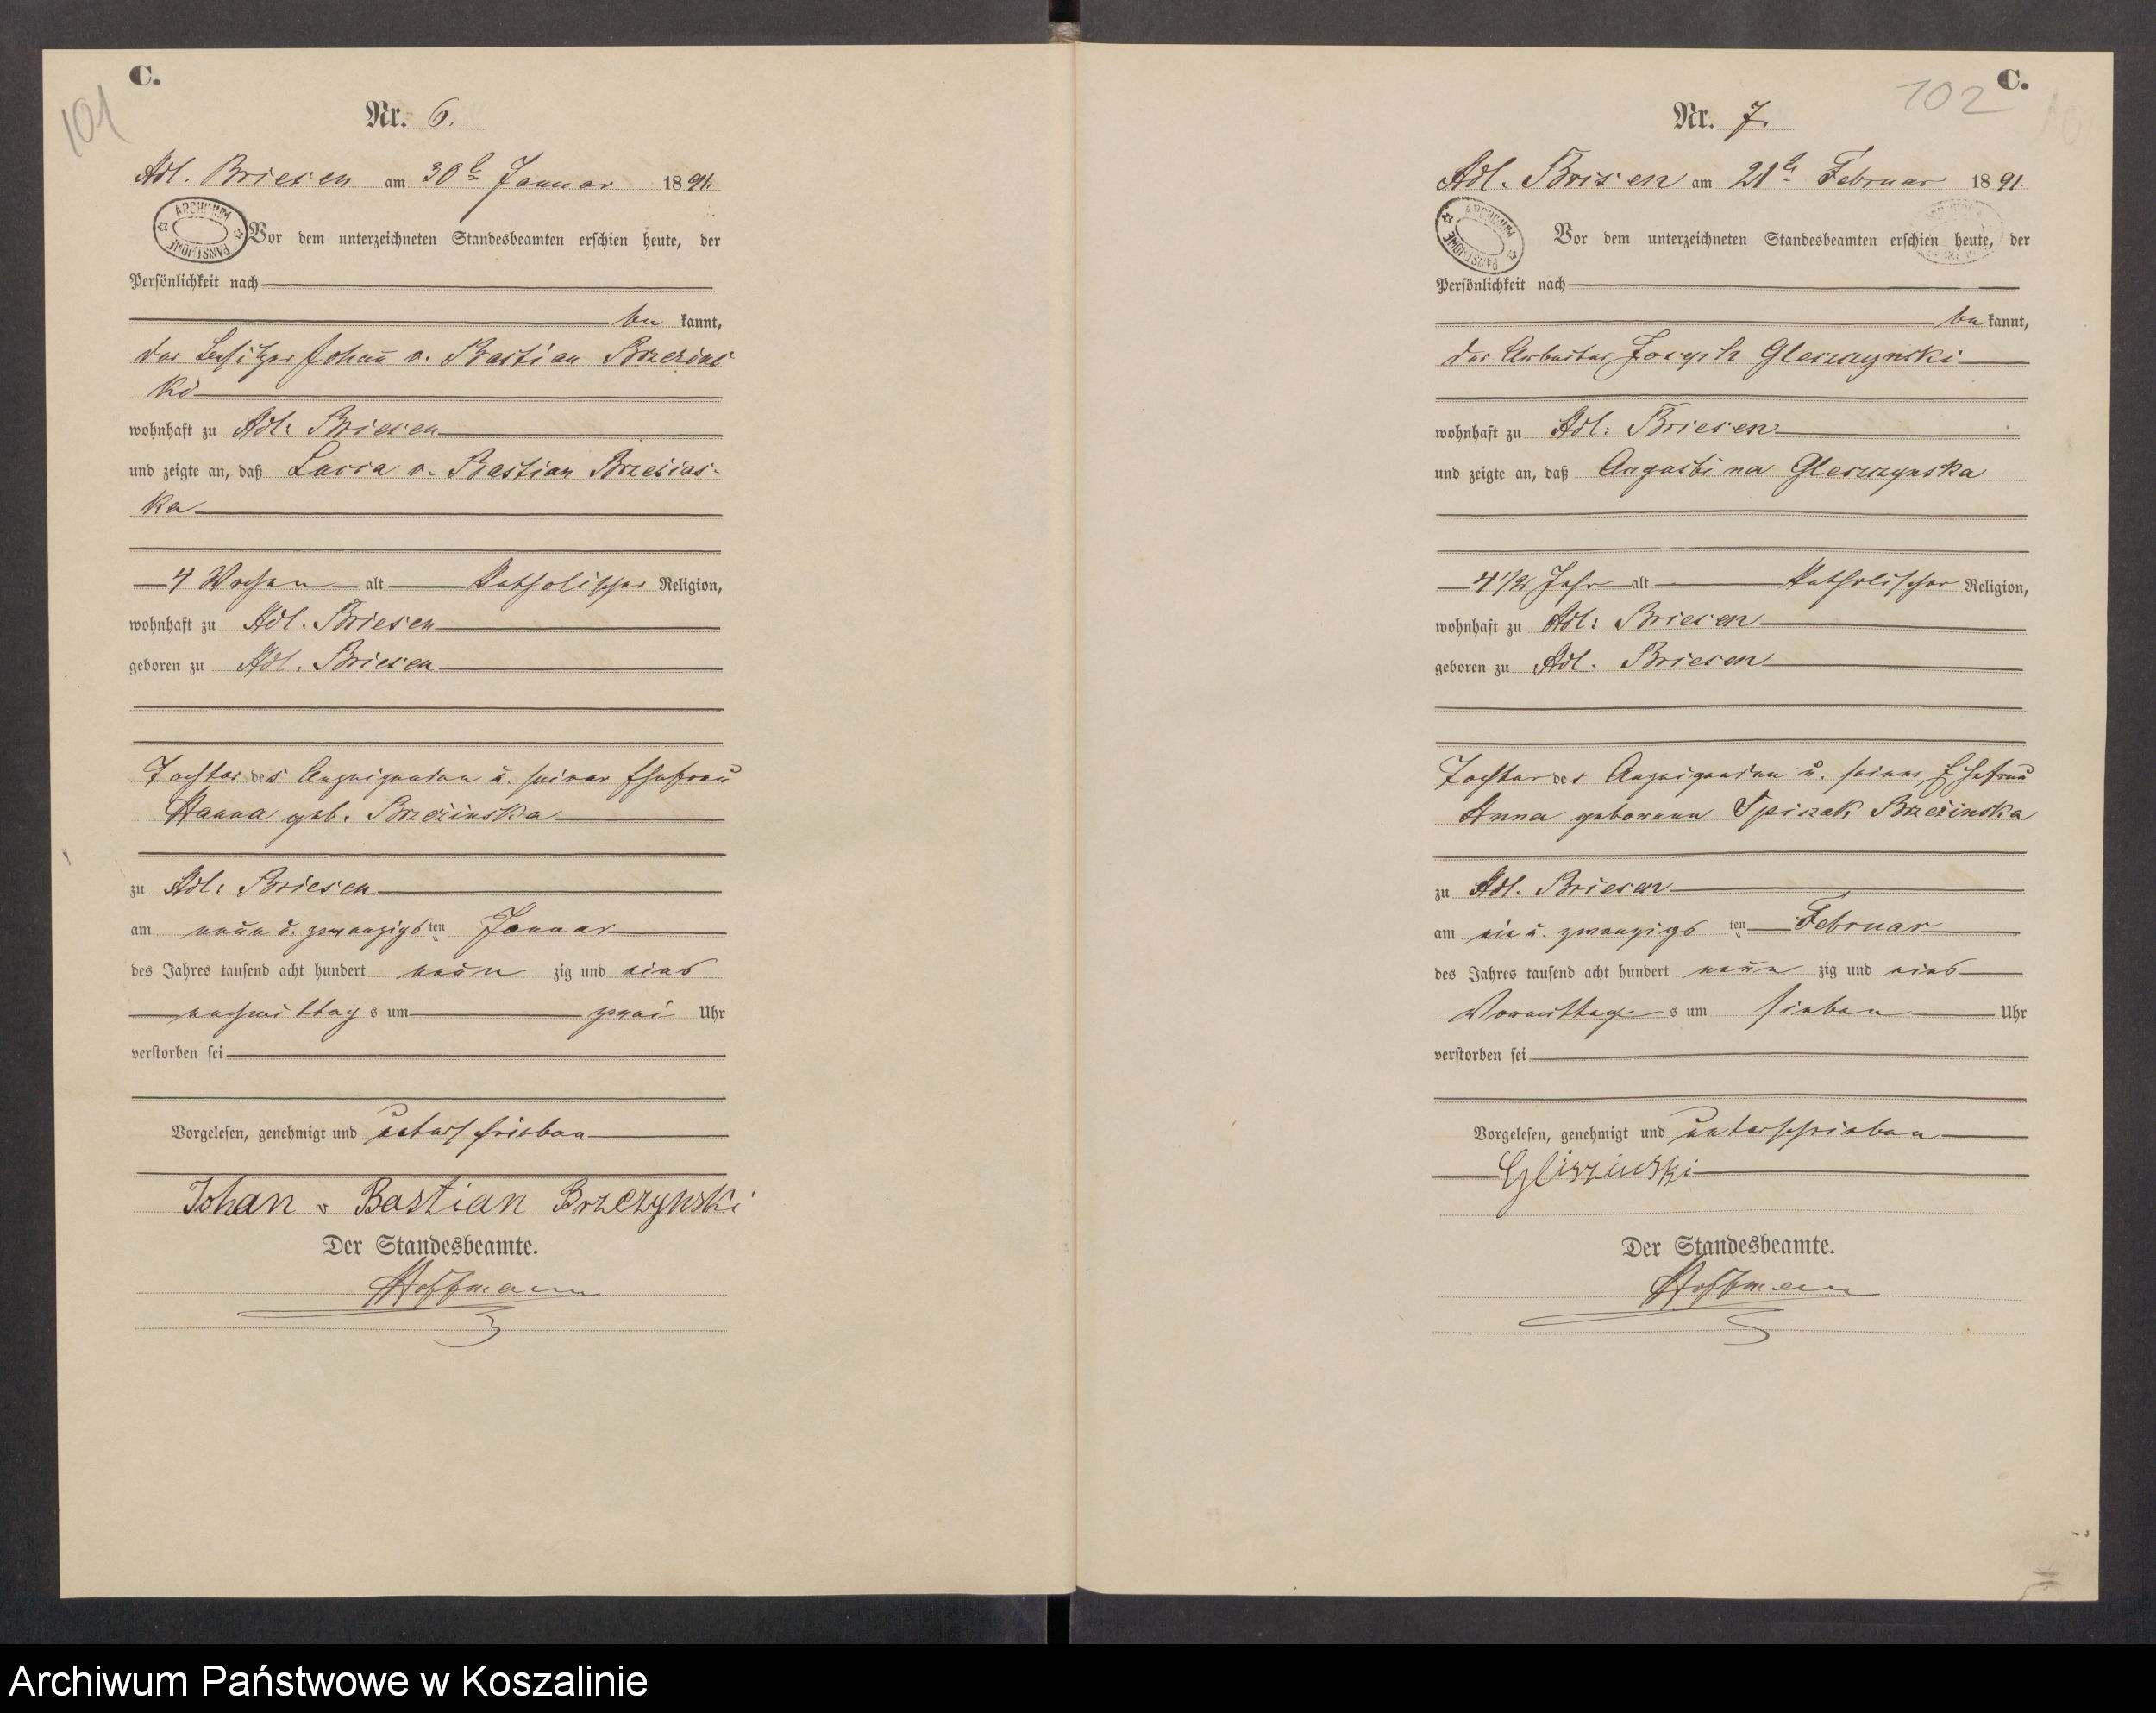 C.
101
Nr. 6.
Adl. Briesen am 30t Januar 1891.
ARCHIWUM PAŃSTWOWE
Vor dem unterzeichneten Standesbeamten erschien heute, der
Persönlichkeit nach
be kannt,
der Besitzer Johann v. Bastian Brzezins
ki
wohnhaft zu Adl: Briesen
und zeigte an, daß Lucia v. Bastian Brzesins-
ka
4 Wochen alt Katholischer Religion,
wohnhaft zu Adl. Briesen
geboren zu Adl. Briesen
Tochter des Anzeigenden u. seiner Ehefrau
Hanna geb. Brzezinska
zu Adl: Briesen
am neun u. zwanzigsten Januar
des Jahres tausend acht hundert neun zig und eins
nachmittags um zwei Uhr
verstorben sei
Vorgelesen, genehmigt und unterschrieben
Johan v Bastian Brzezynski
Der Standesbeamte.
Hoffmann
C.
102
Nr. 7.
Adl. Brisen am 21t Februar 1891.
ARCHIWUM PAŃSTWOWE
Vor dem unterzeichneten Standesbeamten erschien heute, der
Persönlichkeit nach
be kannt,
der Arbeiter Joseph Gleszczynski
wohnhaft zu Adl: Briesen
und zeigte an, daß Augustina Gleszczynska
4 1/2 Jahr alt Katholischer Religion,
wohnhaft zu Adl: Briesen
geboren zu Adl. Briesen
Tochter des Anzeigenden u. seiner Ehefrau
Anna geborene Spiczak Brzezinska
zu Adl. Briesen
am ein u. zwanzigsten Februar
des Jahres tausend acht hundert neun zig und eins
Vormittags um sieben Uhr
verstorben sei
Vorgelesen, genehmigt und unterschrieben
Gliszinski
Der Standesbeamte.
Hoffmann
Archiwum Państwowe w Koszalinie